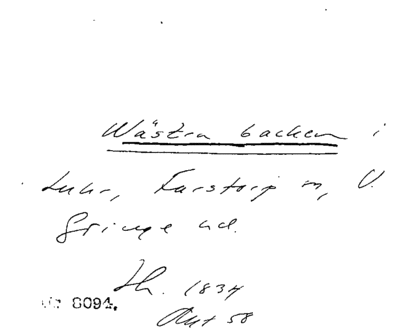 Wästra backen i
Luhr, Farstorp sn, V.
Göinge hd.
Jb. 1834
Akt 58
Nr 8094.